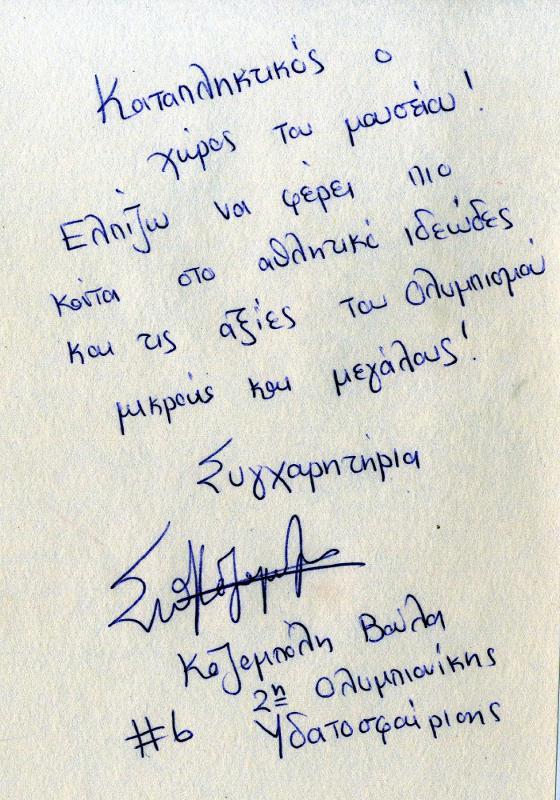 Καταπληκτικός ο
χώρος του μουσείου!
Ελπίζω να φέρει πιο
κοντα στο αθλητικό ιδεώδες
και τις αξίες του Ολυμπισμού
μικρούς και μεγάλους!
Συγχαρητήρια
Κοζομπόλη Βούλα
2η Ολυμπιονίκης
#6 Υδατοσφαίρισης